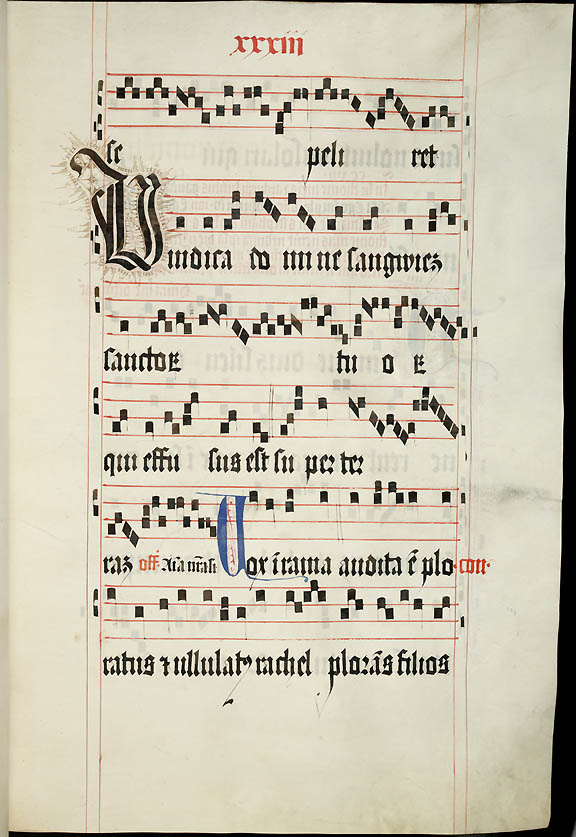 xxxiii
se peli ret
Vindica do mi ne sangwiez
sanctoꝝ tu o ꝝ
qui effu sus est su per ter
raz off. Aīa nr̄a sic Vox ī rama audita ē plo con.
ratus ⁊ ullulatꝰ rachel plorās filios